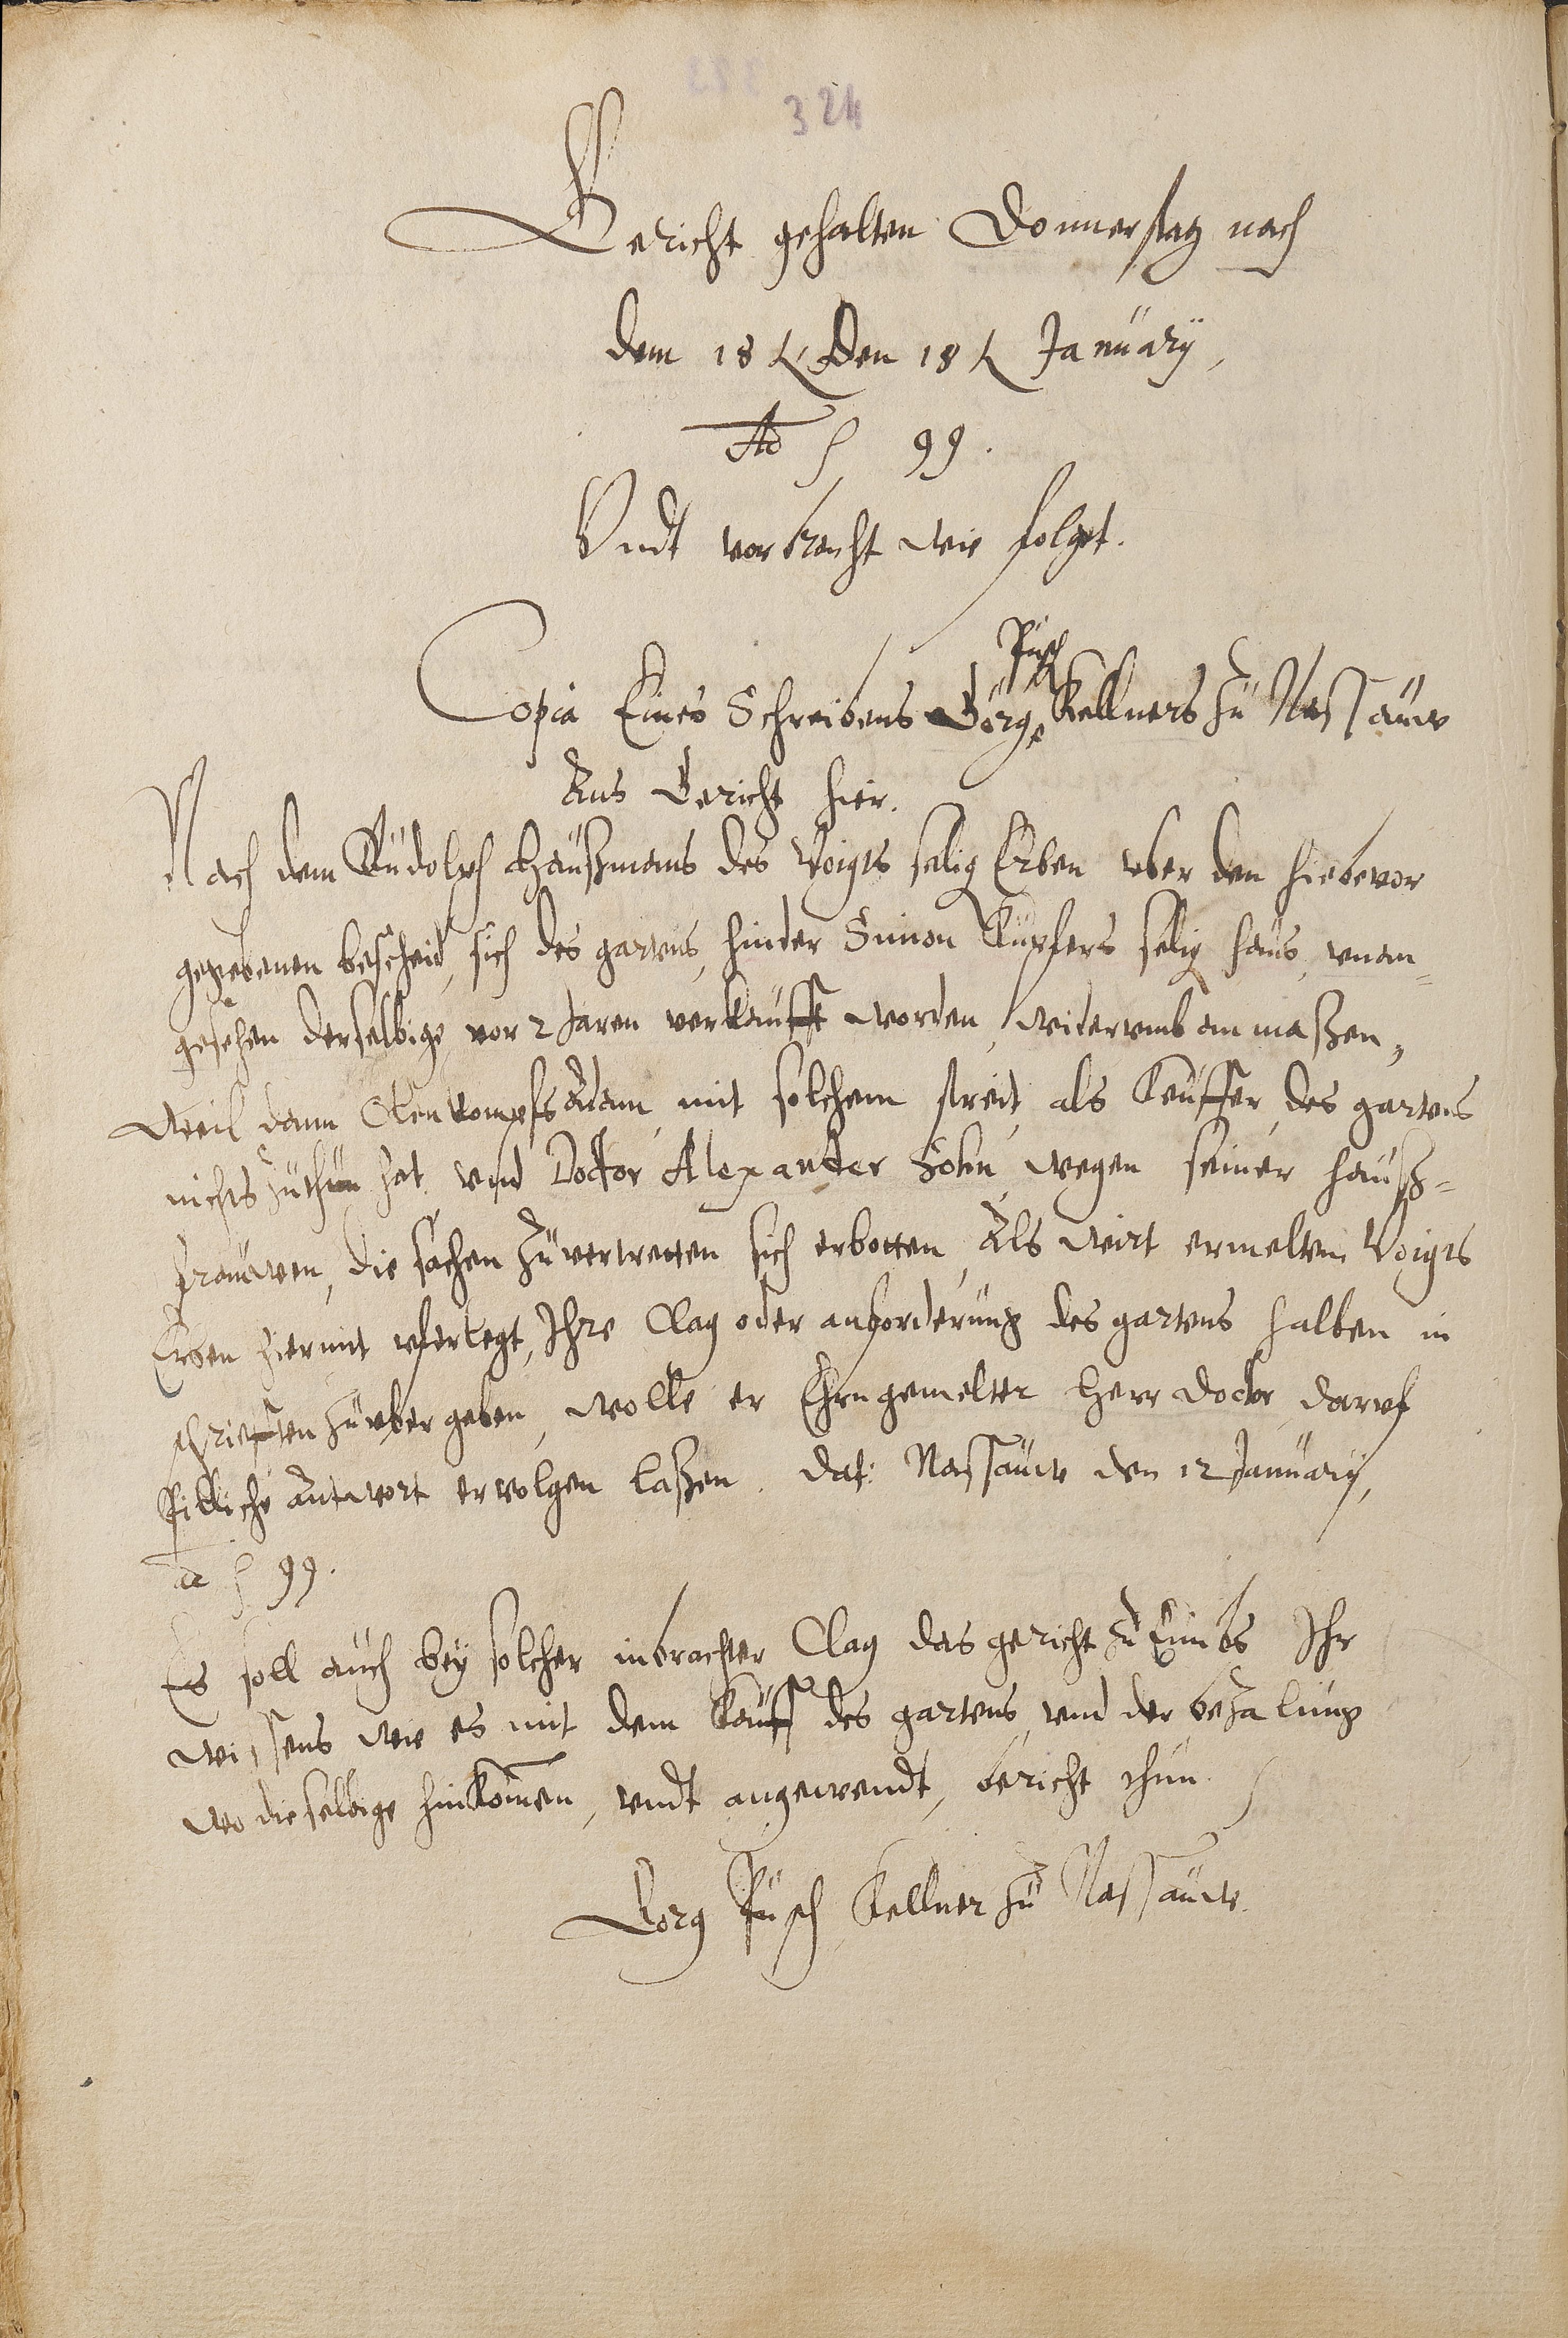 324
Gericht gehalten Donnerstag nach
dem 18 t. Den 18 t January,
Ao p 99.
Vndt vorbracht wie folget.
Pusch
Copia Eines Schreibens Görg Kellners zu Nassauw
Ans Gericht hier.
Nach dem Rudolph Haußmans des Voigts selig Erben vber den hiebevor
gegebenen bescheid, sich des gartens, hinder Simon Kupfers selig haus, vnan-
gesehen derselbige vor 2 Jaren verkaufft worden, widerumb anmaßen,
Weil dann Adam, mit solchem streit, als Keuffer, des gartens
nichts zuthun hat vnd Doctor Alexander Sohn wegen seiner hauß-
frauwen, die sachen zuvertretten sich erbotten, Als wirt ermelten Voigts
Erben hiermit vferlegt, Ihre Clag oder anforderung des gartens halben in
schriefften zuvbergeben, wolle er Ehrngemelter Herr Doctor darvf
Pilliche Antwort ervolgen laßen. Dat: Nassauw den 12 January,
ao p 99.
Es soll auch bey solcher inbrachter Clag das gericht zu Eimbs Ihr
wissens wie es mit dem Kauff des gartens vnd der bezalung
wo dieselbige hinkomen, vndt angewendt, bericht thun.
Görg Pusch Kellner zu Nassauw.